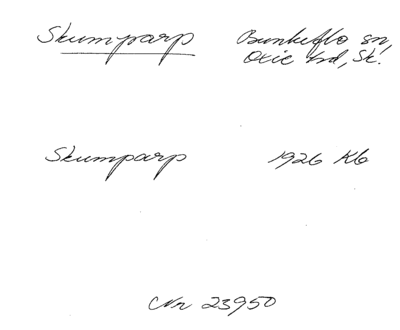 Skumparp Bunkeflo sn,
Oxie hd, Sk.
Skumparp 1926 K6
Nr 23950